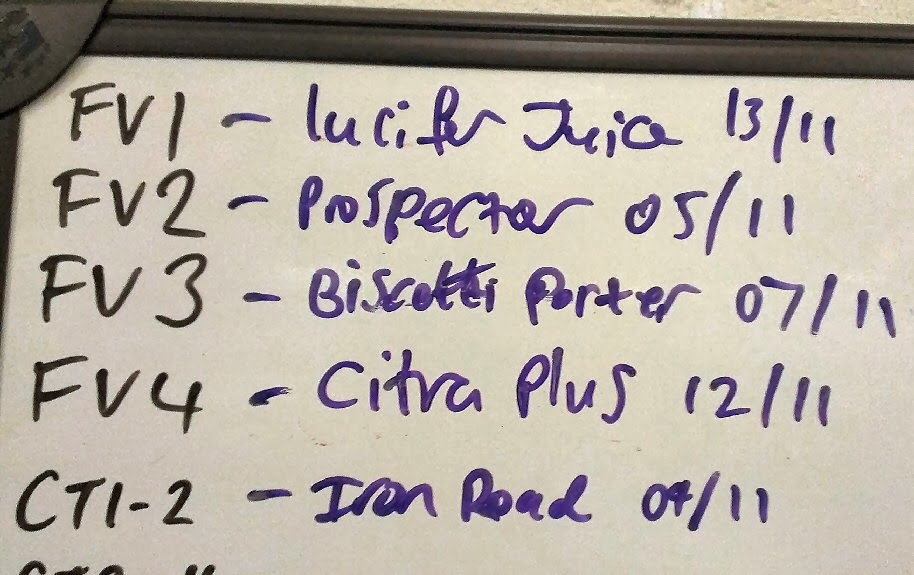 FV1 - lucifer Juice 13/11
FV2 - Prospector 05/11
FV3 - Biscotti Porter 07/11
FV4 - Citra Plus 12/11
CT1-2 - Iron Road 04/11